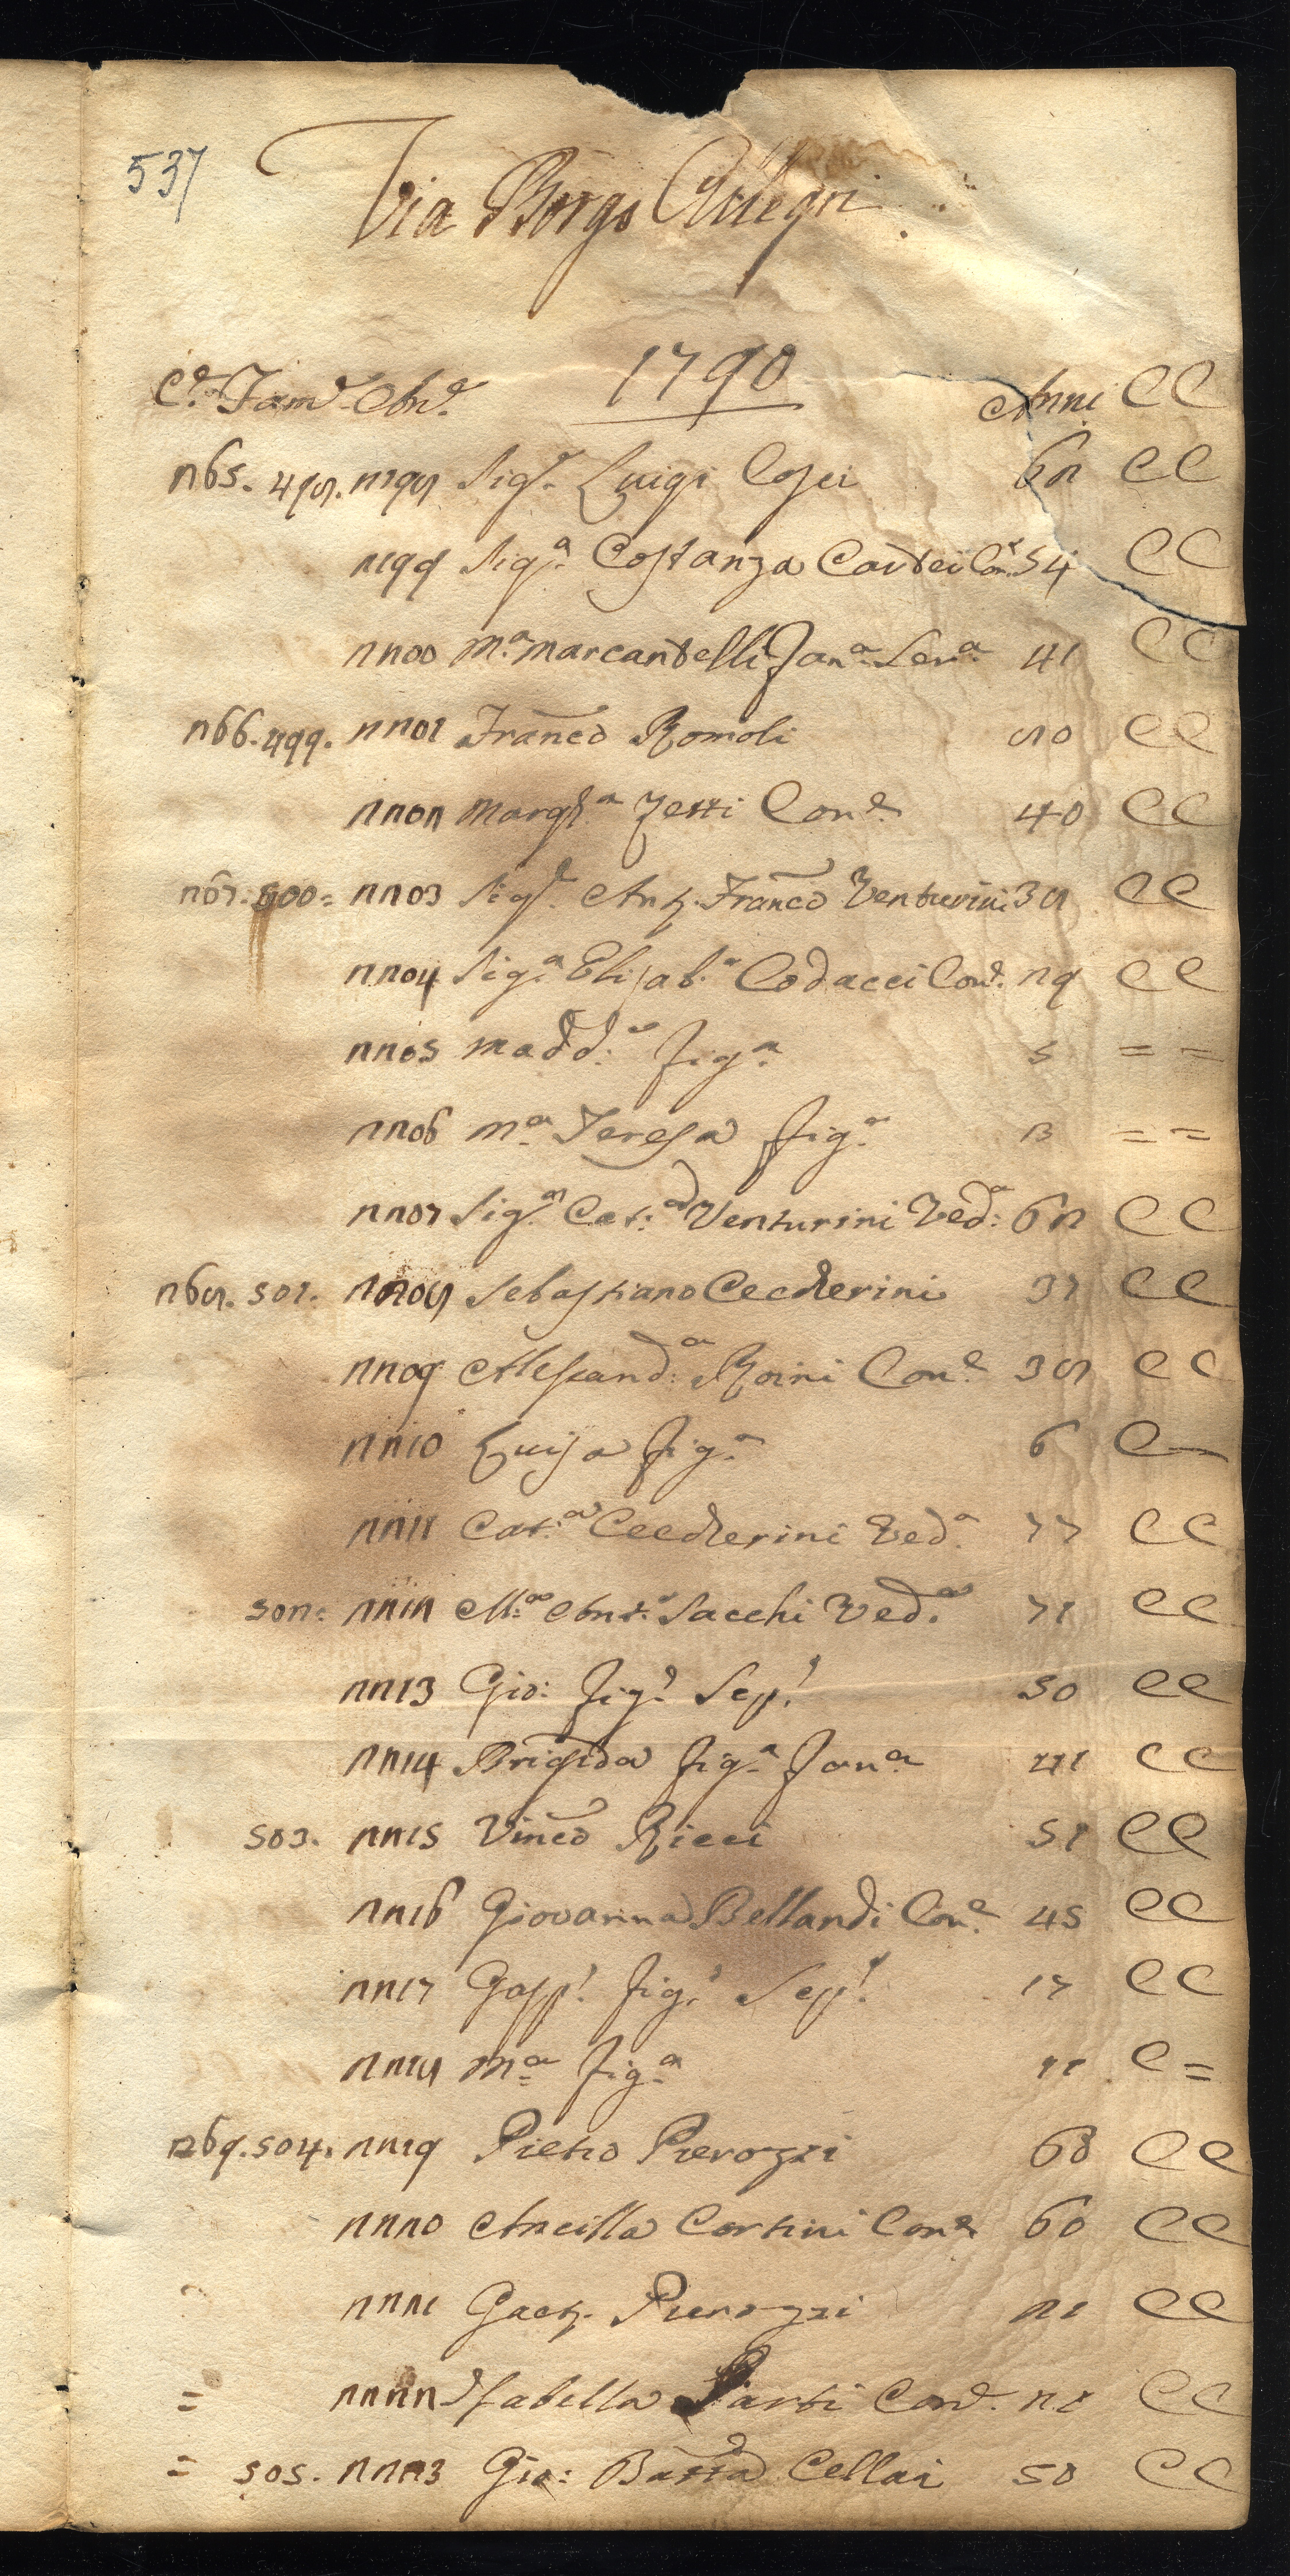 537
Via Borgo Allegri
1790
Ce. Fame. Ane. Anni CC
265. 498. 2198 Sigr. Luigi Cosei 62 CC
2199 Sigra. Costanza Cartei Cone. 54 CC
2200 Ma. Marcantelli Fana. Serva. 41 CC
266. 499. 2201 Franco Romoli 80 CC
2202 Margta. Zetti Cone. 40 CC
267. 500. 2203 Sigr. Anto. Franco Venturini 38 CC
2204 Siga. Elisaba. Codacci Cone. 29 CC
2205 Madda. figa. 5 = =
2206 Ma. Teresa figa. = =
2207 Siga. Cata. Venturini Veda: 62 CC
268. 501. 2208 Sebastiano Ceccherini 37 CC
2209 Alessanda: Roini Cone. 38 CC
2210 Luisa figa. 6 C—
2211 Cata. Ceccherini Veda. 77 CC
502. 2212 Ma. Anta. Sacchi Veda. 71 CC
2213 Gio: figo. Sepe. 50 CC
2214 Brigida figa. Fana. 41 CC
503. 2215 Vinco Ricci 51 CC
2216 Giovanna Bellandi Cone. 45 CC
2217 Gaspe. figo. Sepe. 17 CC
2218 Ma. figa. 11 C =
269. 504. 2219 Pietro Pierozzi CC
2220 Ancilla Cortini Cone. 60 CC
2221 Gaeto. Pierozzi 21 CC
= 2222 Isabella Parti Cone. 21 CC
= 505. 2223 Gio: Batta Cellai 50 CC